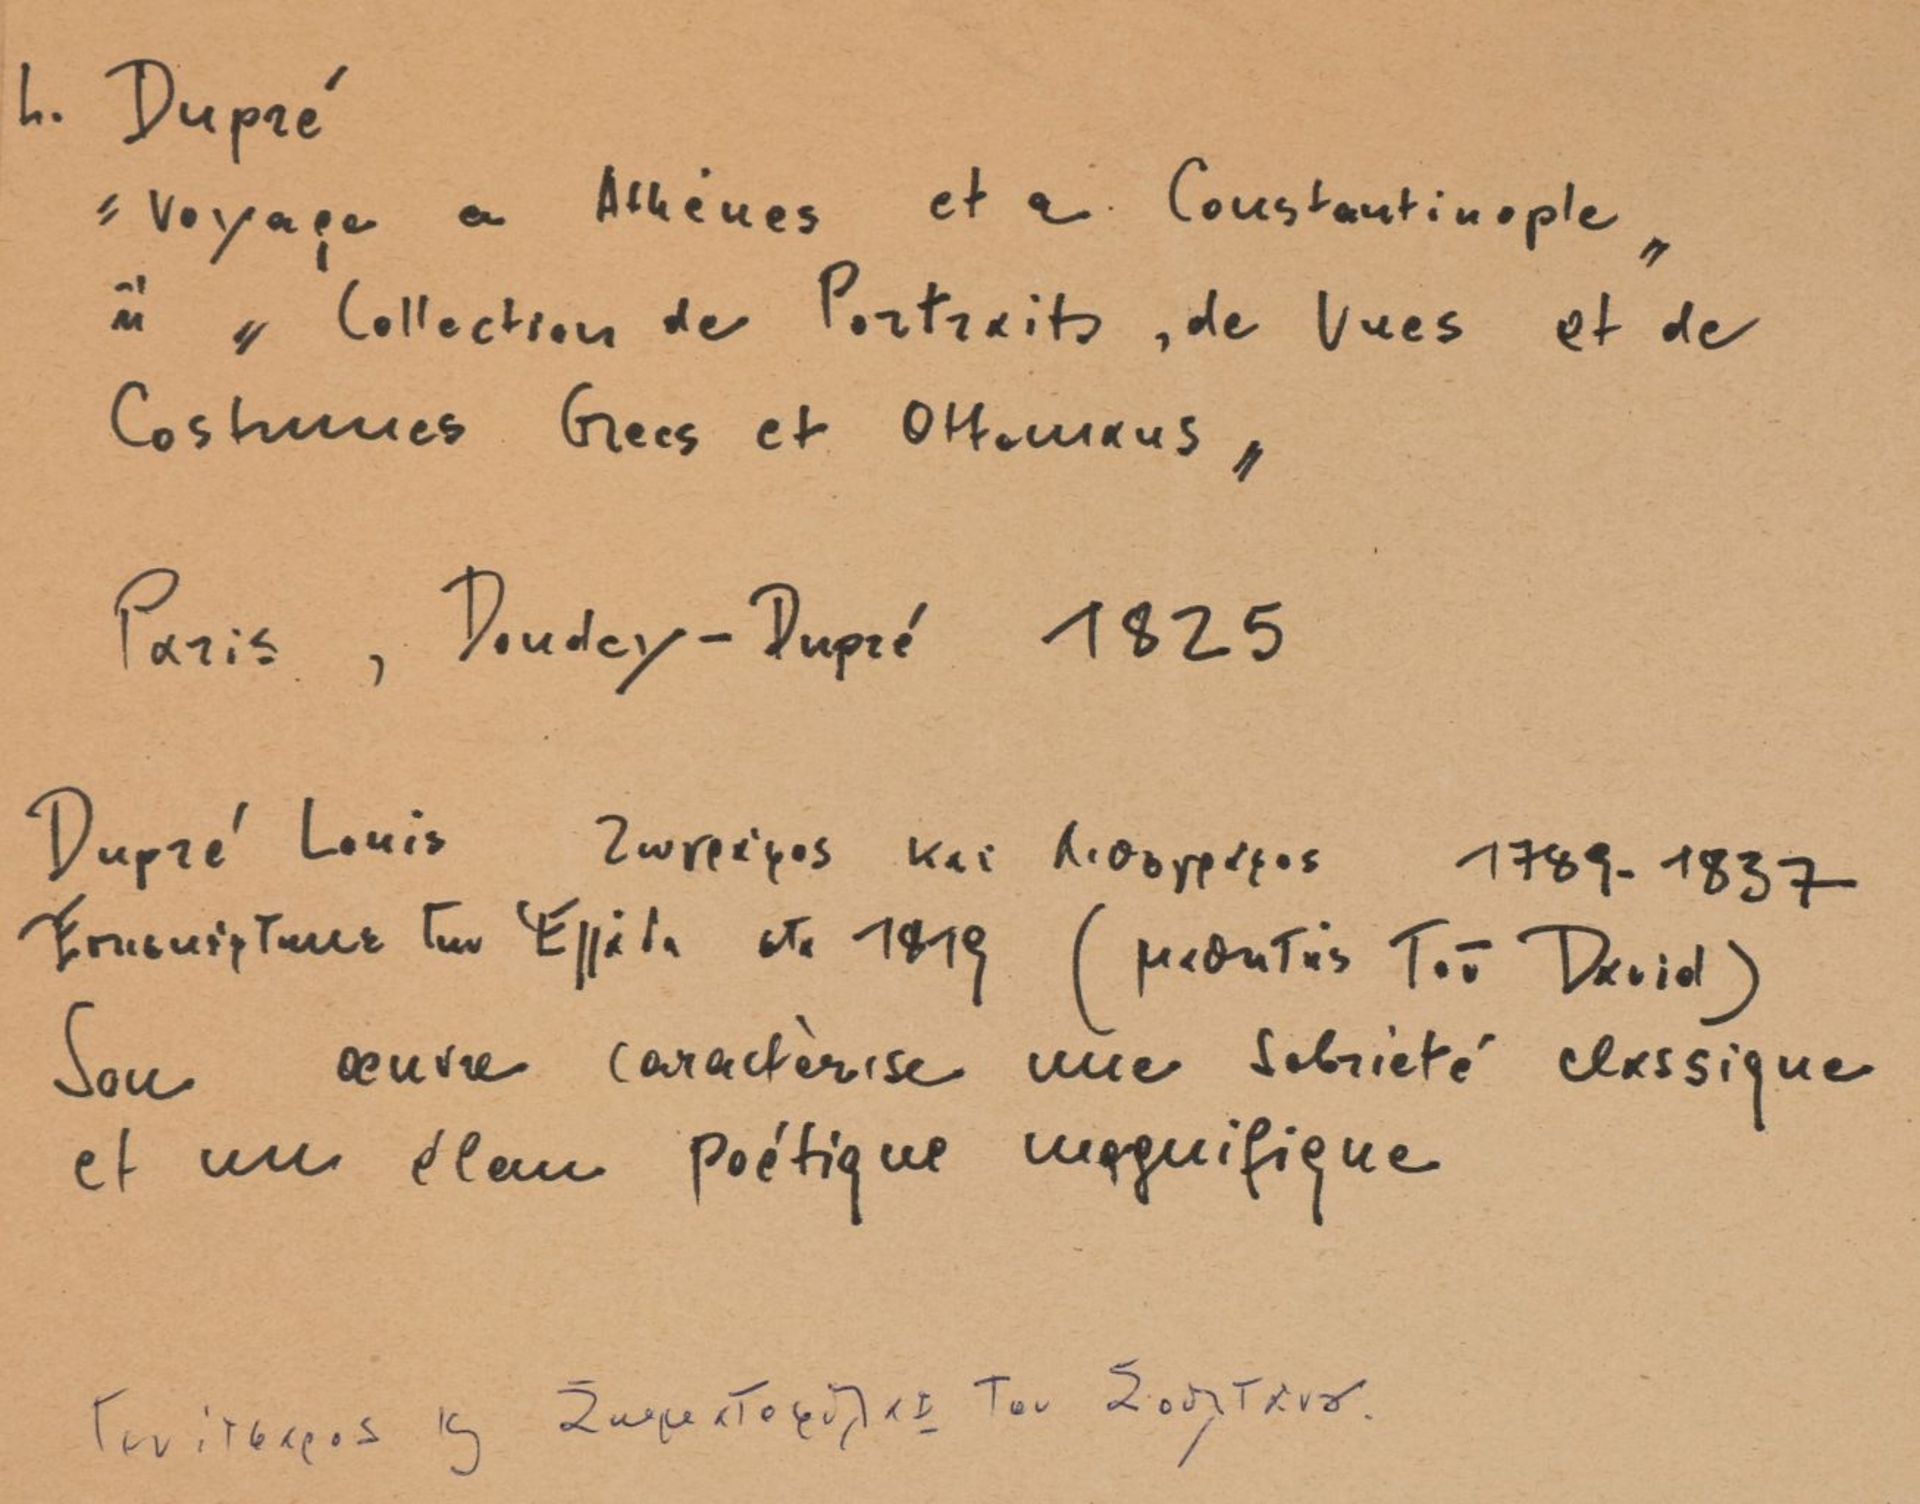 L. Dupré
"Voyage a Athénes et a Constantinople"
ἢ "Collection de Portraits, de Vues et de
Costumes Grecs et Ottomans"
Paris, Dondey-Dupré 1825
Dupré Louis Ζωγράφος και Λιθογράφος 1789-1837
Ἐπισκέφτηκε την Ἑλλάδα στα 1819 (μαθητής τοῦ David)
Son œuvre caractèrise une sobrieté classique
et un élan poétique magnifique
Γενίτσαρος ϗ Σωματοφύλαξ του Σουλτάνου.